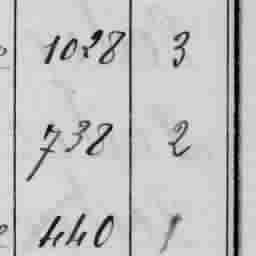 1028 3
738 2
440 1